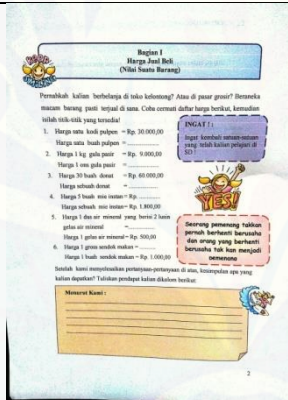 Bagian I
Harga Jual Beli
(Nilai Suatu Barang)
Pernahkah kalian berbelanja di toko kelontong? Atau di pasar grosir? Beraneka
macam barang pasti terjual di sana. Coba cermati daftar harga berikut, kemudian
isilah titik-titik yang tersedia!
1. Harga satu kodi pulpen = Rp. 30.000,00
Harga satu buah pulpen = ..............
2. Harga 1 kg gula pasir = Rp. 9.000,00
Harga 1 ons gula pasir = ..............
3. Harga 30 buah donat = Rp. 60.000,00
Harga sebuah donat = ..............
4. Harga 5 buah mie instan = Rp. ..............
Harga sebuah mie instan = Rp. 1.800,00
5. Harga 1 dus air mineral yang berisi 2 lusin
gelas air mineral = ..............
Harga 1 gelas air mineral = Rp. 500,00
6. Harga 1 gross sendok makan = ..............
Harga 1 buah sendok makan = Rp. 1.000,00
INGAT! :
Ingat kembali satuan-satuan
yang telah kalian pelajari di
SD !
YES!
Seorang pemenang takkan
pernah berhenti berusaha
dan orang yang berhenti
berusaha tak kan menjadi
pemenang
Setelah kamu menyelesaikan pertanyaan-pertanyaan di atas, kesimpulan apa yang
kalian dapatkan? Tuliskan pendapat kalian dikolom berikut.
Menurut Kami :
2